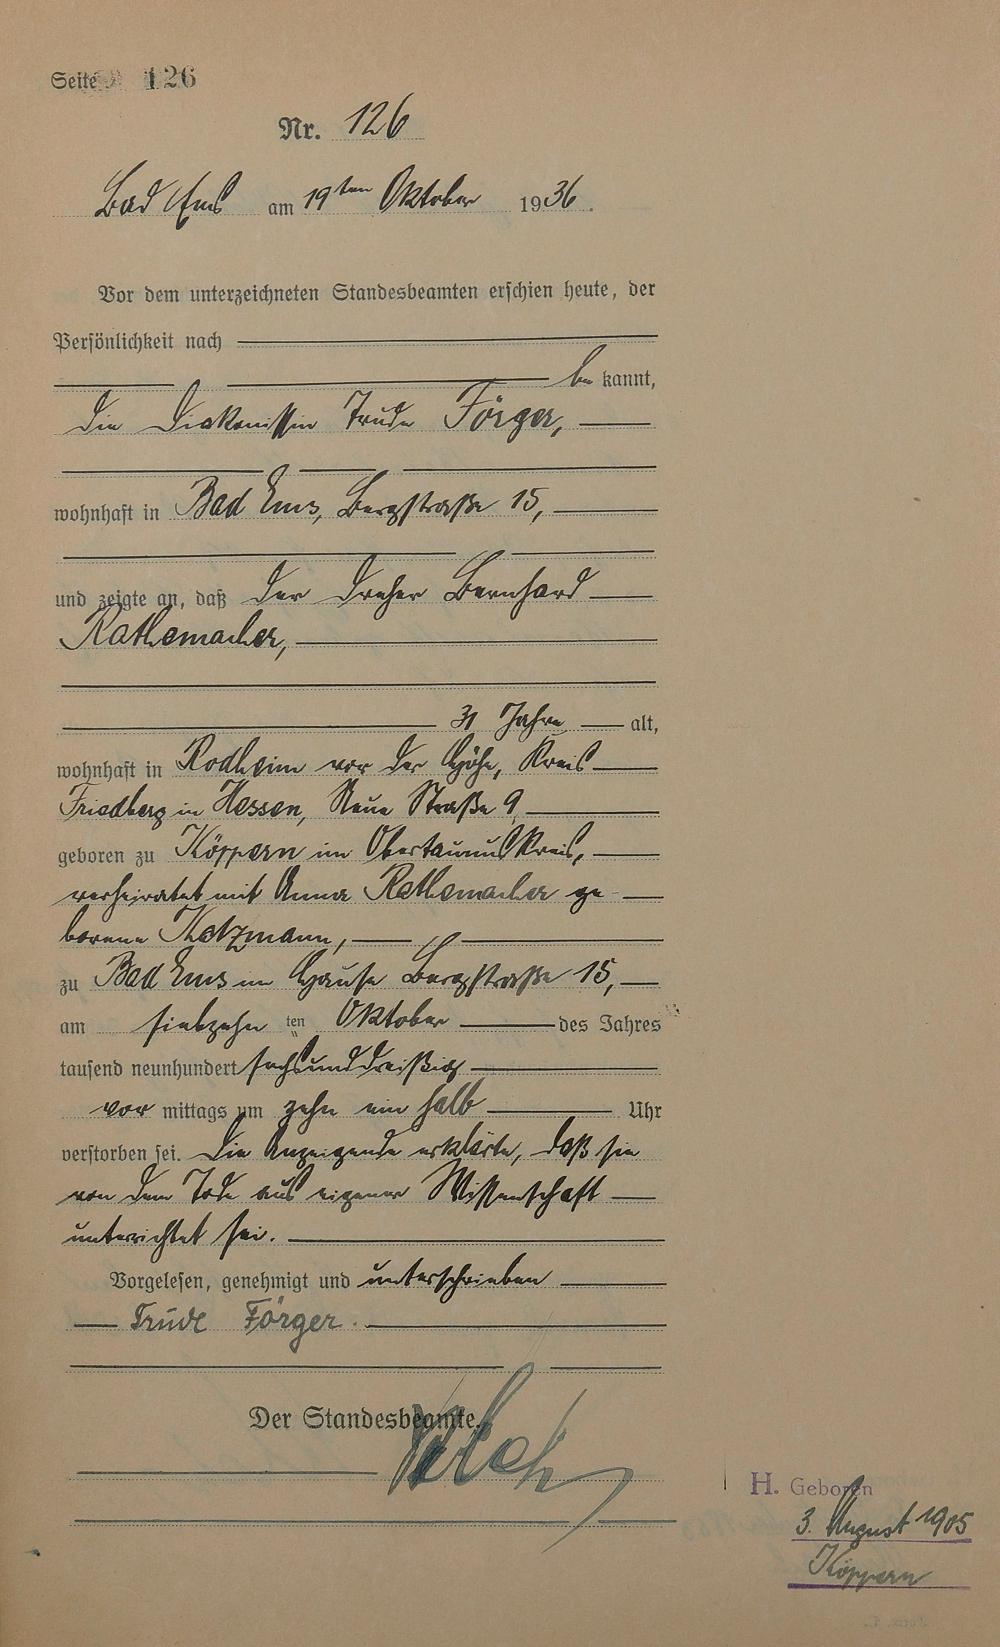 Seite 126
Nr. 126
Bad Ems am 19ten Oktober 1936.
Vor dem unterzeichneten Standesbeamten erschien heute, der
Persönlichkeit nach
be kannt,
die Diakonissin Trude Förger,
wohnhaft in Bad Ems, Bergstraße 15,
und zeigte an, daß der Dreher Bernhard
Rathemacher,
31 Jahre alt,
wohnhaft in Rodheim vor der Höhe, Kreis
Friedberg in Hessen, Neue Straße 9,
geboren zu Köppern im Obertaunuskreis,
verheiratet mit Anna Rathemacher ge-
borene Katzmann,
zu Bad Ems im Hause Bergstraße 15,
am siebzehn ten Oktober des Jahres
tausend neunhundert sechsunddreißig
vor mittags um zehn ein halb Uhr
verstorben sei. Die Anzeigende erklärte, daß sie
von dem Tode aus eigener Wissenschaft
unterrichtet sei.
Vorgelesen, genehmigt und unterschrieben
Trude Förger.
Der Standesbeamte.
H. Geboren
3. August 1905
Köppern